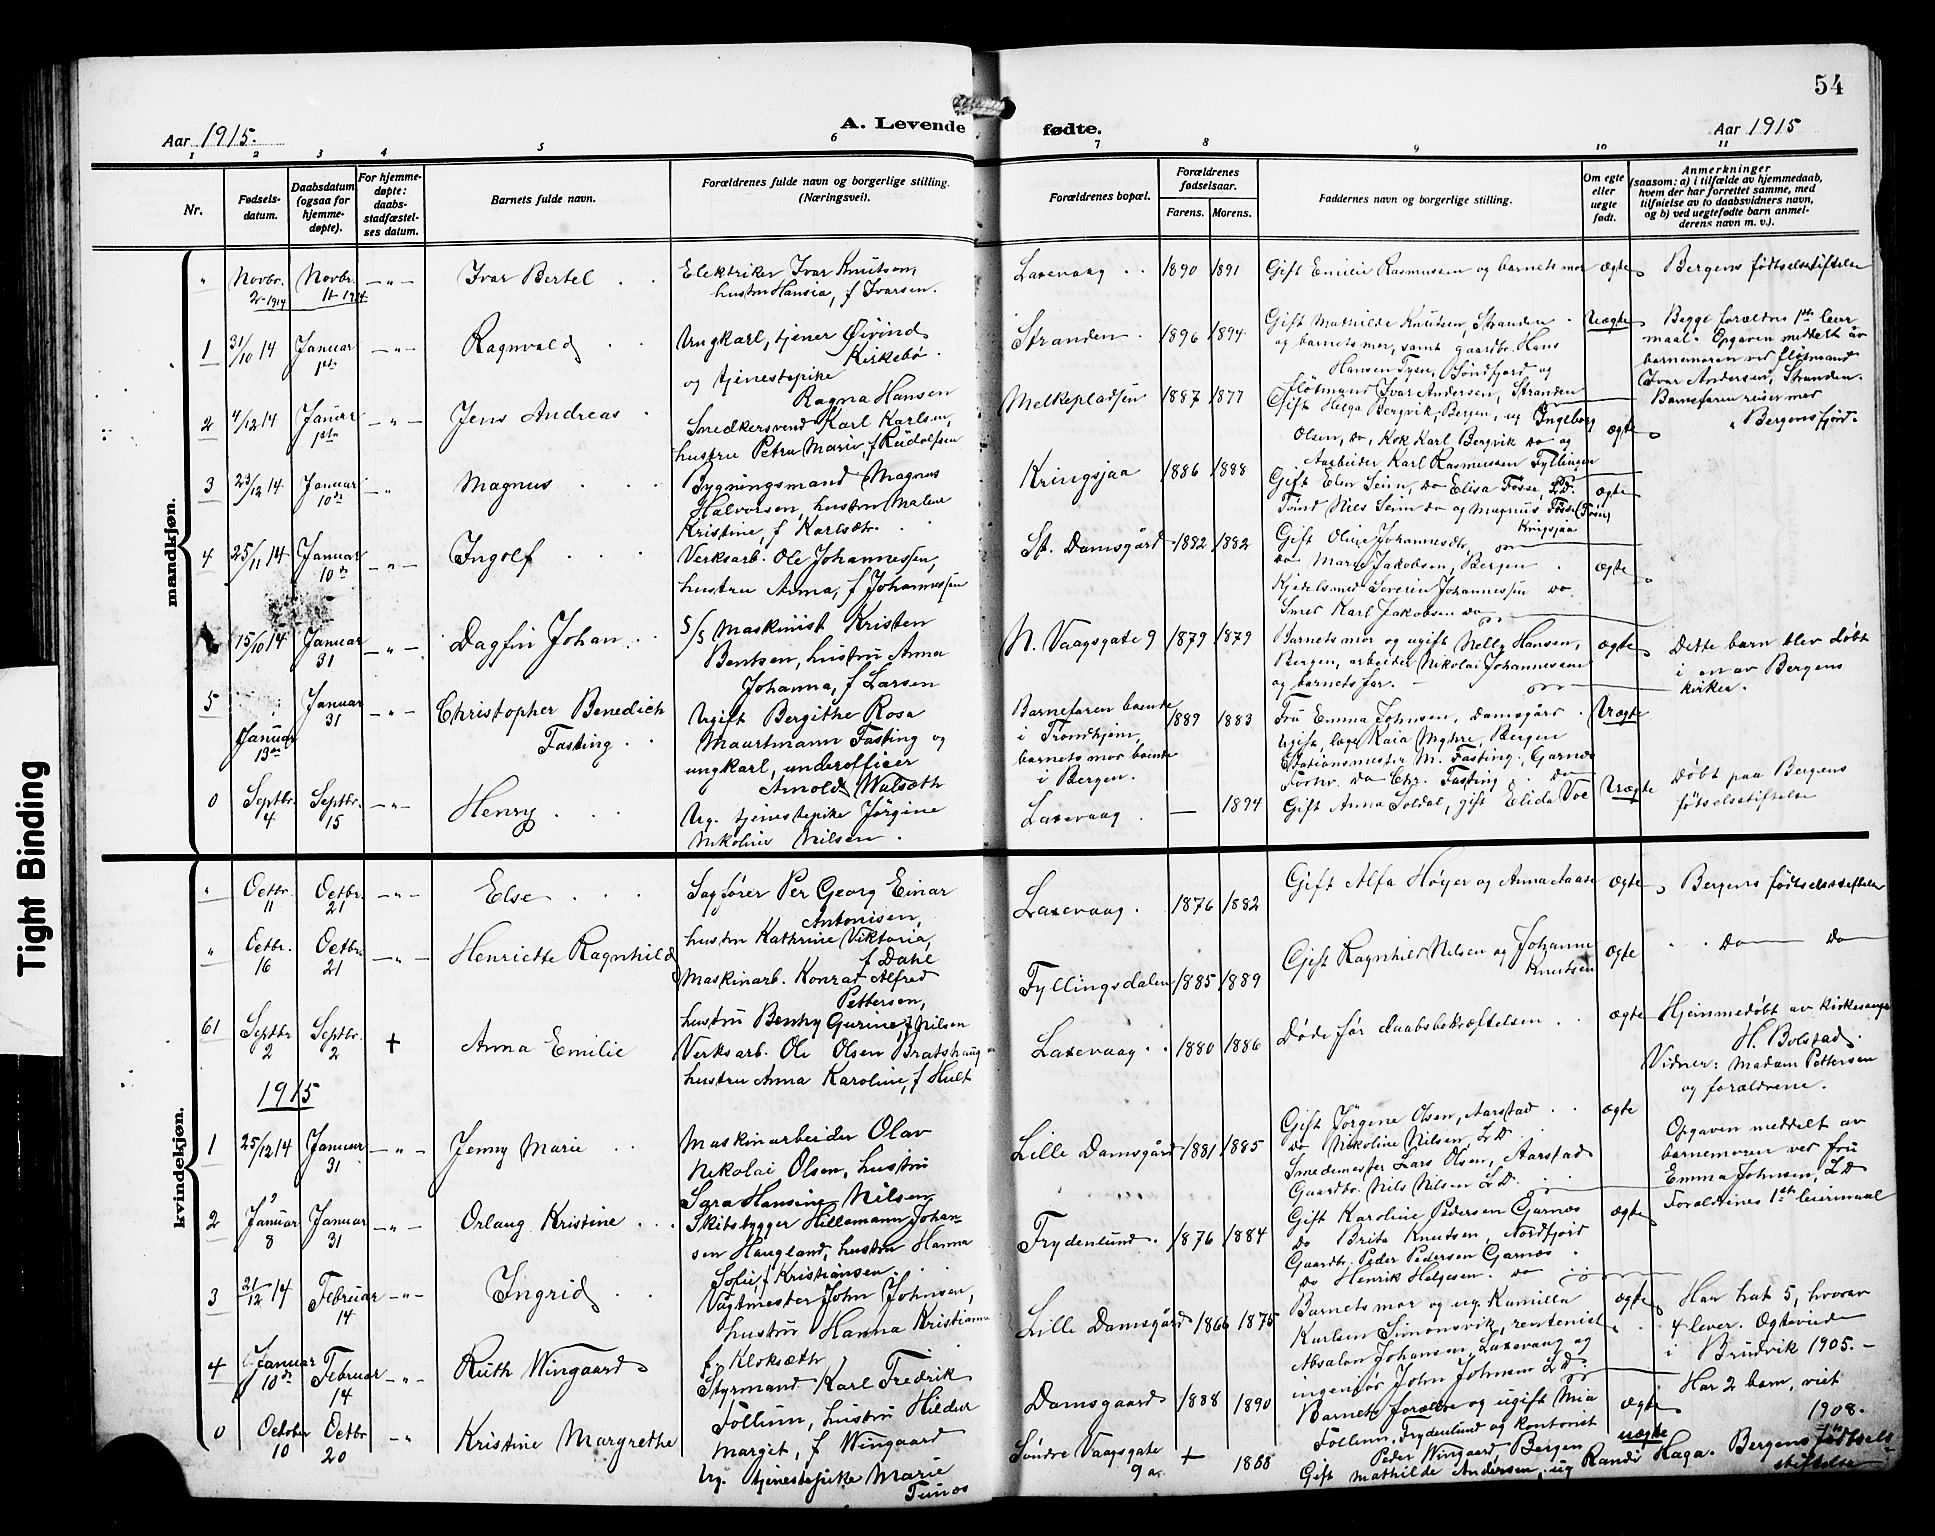 54
Aar 1915.
A. Levende
fødte.
Aar 1915
1 2 3 4 5 6 7 8 9 10 11
Nr.
Fødsels-
datum.
Daabsdatum
(ogsaa for
hjemme-
døpte).
For hjemme-
døpte:
daabs-
stadfæstel-
ses datum.
Barnets fulde navn.
Forældrenes fulde navn og borgerlige stilling.
(Næringsvei).
Forældrenes bopæl.
Forældrenes
fødselsaar.
Farens. Morens.
Faddernes navn og borgerlige stilling.
Om egte
eller
uegte
født.
Anmerkninger
(saasom: a) i tilfælde av hjemmedaab,
hvem der har forrettet samme, med
tilføielse av to daabsvidners navn,
og b) ved uegtefødte barn anmel-
derens navn m. v.).
mandkjøn.
" Novbr. 2-1914 Novbr. 11-1914 -"- Ivar Bertel
Elektriker Ivar Knutsen,
hustru Hansia, f Ivarsen.
Laxevaag 1890 1891
Gift Emilie Rasmussen og barnets mor ægte
Bergens fødselsstiftelse
1 31/10 14 Januar 1ste -"- Ragnvald
Ungkarl, tjener Øivind
Kirkebø.
og tjenestepike
Ragna Hansen
Stranden 1896 1894
Gift Mathilde Knutsen, Stranden
og barnets mor, samt gaardbr. Hans
Hansen Tysse, Søndfjord og
fløtmand Ivar Andersen, Stranden
Uægte
Begge forældres 1ste leier
maal. Opgaven meddelt av
barnemoren ved fløtmand
Ivar Andersen, Stranden.
Barnefaren reiser med
"Bergensfjord".
2 4/12 14 Januar 1ste -"- Jens Andreas
Snedkersvend Karl Karlsen,
hustru Petra Marie, f Rudolfsen
Melkepladsen 1887 1877
Gift Helga Bergvik, Bergen, ug Ingeborg
Olsen, do, Kok Karl Bergvik do og
Aarbeider Karl Rasmussen Fyllingen
ægte
3 23/12 14 Januar 10de -"- Magnus
Bygningsmand Magnus
Halvorsen, hustru Malene
Kristine, f Karlsdtr.
Kringsjaa 1886 1888
Gift Elen Seim, do Elisa Fosse, L.D.
Tømd Nils Seim do og Magnus Fosse (Fosen)
Kringsjaa
ægte
4 25/11 14 Januar 10de -"- Ingolf
Verksarb. Ole Johannessen,
hustru Anna, f Johannessen
St. Damsgård 1882 1882
Gift Oline Johannesdtr,
do Marie Jakobsen, Bergen
Kjedelsmed Severin Johannessen do
Smed Karl Jakobsen do
ægte
15/10 14 Januar 31 -"- Dagfin Johan
S/S Maskinist Kristen
Bentsen, hustru Anna
Johanna, f Larsen
N. Vaagsgate 9 1879 1879
Barnets mor og ugift Nelly Hansen,
Bergen, arbeider Nikolai Johannessen
og barnets far.
ægte
Dette barn blev døbt
i en av Bergens
kirker.
5 Januar 13de Januar 31 -"- Christopher Benedich
Fasting
Ugift Bergithe Rosa
Maartmann Fasting og
ungkarl, underofficer
Arnold Walseth
Barnefaren boende
i Trondhjem,
barnets mor boende
i Bergen.
1889 1883
Fru Emma Johnsen, Damsgård
Ugift, læge Kaia Myhre, Bergen
Stationsmester M. Fasting, Garnes
Forhv. do Chr. Fasting do
Uægte
0 Septbr. 4 Septbr. 15 -"- Henry
Ug. tjenestepike Jørgine
Nikoline Nilsen
Laxevaag — 1894
Gift Anna Soldal, gift Elida Voe
Uægte
Døbt paa Bergens
fødselsstiftelse
kvindekjøn.
" Octbr. 11 Octbr. 21 -"- Else
Sagfører Per Georg Einar
Antonisen,
hustru Kathrine Viktoria,
f Dahl
Laxevaag. 1876 1882
Gift Alfa Høyer og Anna Aase ægte
Bergens fødselsstiftelse
" Octbr. 16 Octbr. 21 -"- Henriette Ragnhild
Maskinarb. Konrat Alfred
Pettersen,
hustru Bentzy Gurine, f Nilsen
Fyllingsdalen 1885 1889
Gift Ragnhild Nilsen og Johanne
Knutsen
ægte
do do
61 Septbr 2 Septbr. 2 † Anna Emilie
Verksarb. Ole Olsen Bratshaug
hustru Anna Karoline, f Hult
Laxevaag 1880 1886
Døde før daabsbekræftelsen ægte
Hjemmedøbt av kirkesanger
H. Bolstad.
Vidner: Madam Pettersen
og forældrene.
1915
1 25/12 14 Januar 31 -"- Jenny Marie
Maskinarbeider Olav
Nikolai Olsen, hustru
Sara Hansine Nilsen
Lille Damsgård 1881 1885
Gift Jørgine Olsen, Aarstad
do Nikoline Nilsen, L D
Smedemester Lars Olsen, Aarstad
Gaardbr. Nils Nilsen L D
ægte
Opgaven meddelt av
barnemoren ved fru
Emma Johnsen, L D
Forældrenes 1ste leiermaal
2 Januar 8 Januar 31 -"- Orlaug Kristine
Skibsbygger Hillemann Johan-
sen Haugland, hustru Hanna
Sofie, f Kristiansen
Frydenlund. 1876 1884
Gift Karoline Pedersen Garnes
do Brita Knutsen, Nordfjord
Gaardbr. Peder Pedersen Garnes
do Henrik Helgesen. do
ægte
3 21/12 14 Februar 14 -"- Ingrid
Vagtmester John Johnsen,
hustru Hanna Kristianna
f Kloksæth
Lille Damsgård 1866 1875
Barnets mor og ug. Kamilla
Karlsen Simonsvik, rentenist
Absalon Johansen, Laxevaag og
ingeniør John Johnsen L D.
ægte
Har hat 5, hvorav
4 lever. Ogteviede
i Brudvik 1905. —
4 Januar 10de Februar 14 -"- Ruth Wingaard
Styrmand Karl Fredrik
Follum, hustru Hildur
Marget, f Wingaard
Damsgaard 1888 1890
Barnets forældre og ugift Mia
Follum, Frydenlund og kontorist
Peder Wingaard Bergen
ægte
Har 2 barn, viet
1908.
0 October 10 Octbr 20 " Kristine Margrethe
Ug. tjenestepike Marie
Tunes
Søndre Vaagsgate
9 a. + 1888
Gift Mathilde Andersen, ug Randi Haga.
uægte
Bergens fødsels-
stiftelse
Tight Binding